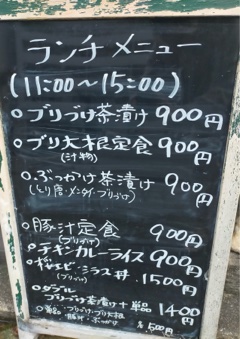 ランチメニュー
(11:00～15:00)
○ブリづけ茶漬け 900円
○ブリ大根定食 900円
(汁物)
○ぶっかけ茶漬け 900円
(とり唐・メンタイ・ブリづけ)
○豚汁定食 900円
(ブリづけ)
○チキンカレーライス 900円
シラス丼 1500円
(ブリづけ)
○ダブル
ブリづけ茶漬け＋単品 1400円
ブリづけ・ブリ大根
500円